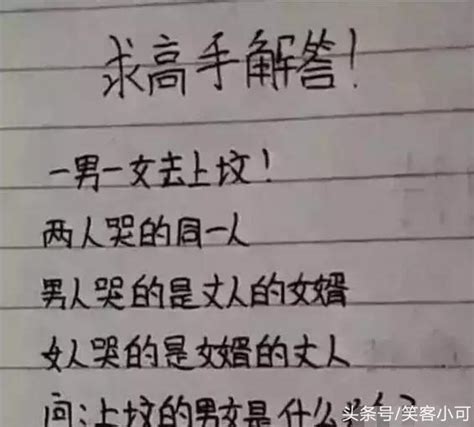 求高手解答!
一男一女去上坟!
两人哭的同一人
男人哭的是丈人的女婿
女人哭的是女婿的丈人
问:上坟的男女是什么
头条号/笑客小可